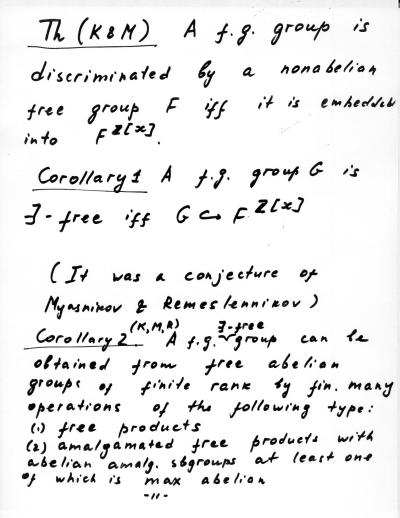 Th (K & M) A f.g. group is
discriminated by a nonabelian
free group F iff it is embeddab
into F^Z[x].
Corollary 1 A f.g. group G is
∃-free iff G ↪ F^Z[x]
(It was a conjecture of
Myasnikov & Remeslennikov)
Corollary 2 (K, M, R) A f.g. ∃-free group can be
obtained from free abelian
groups of finite rank by fin. many
operations of the following type:
(1) free products
(2) amalgamated free products with
abelian amalg. sbgroups at least one
of which is max abelian
-11-